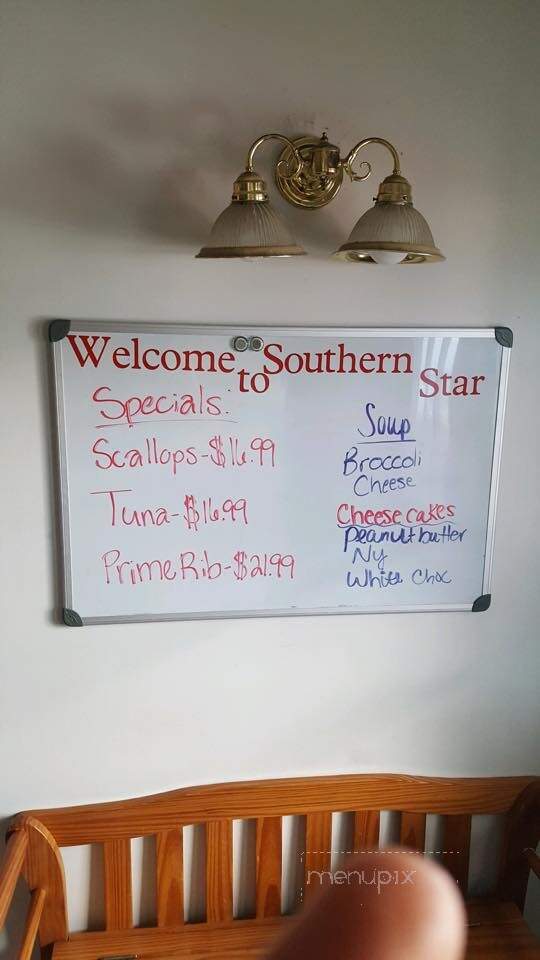 Welcome to Southern Star
Specials:
Scallops-$16.99
Tuna-$16.99
Prime Rib-$21.99
Soup
Broccoli
Cheese
Cheesecakes
Peanutbutter
Ny
White Choc
menupix